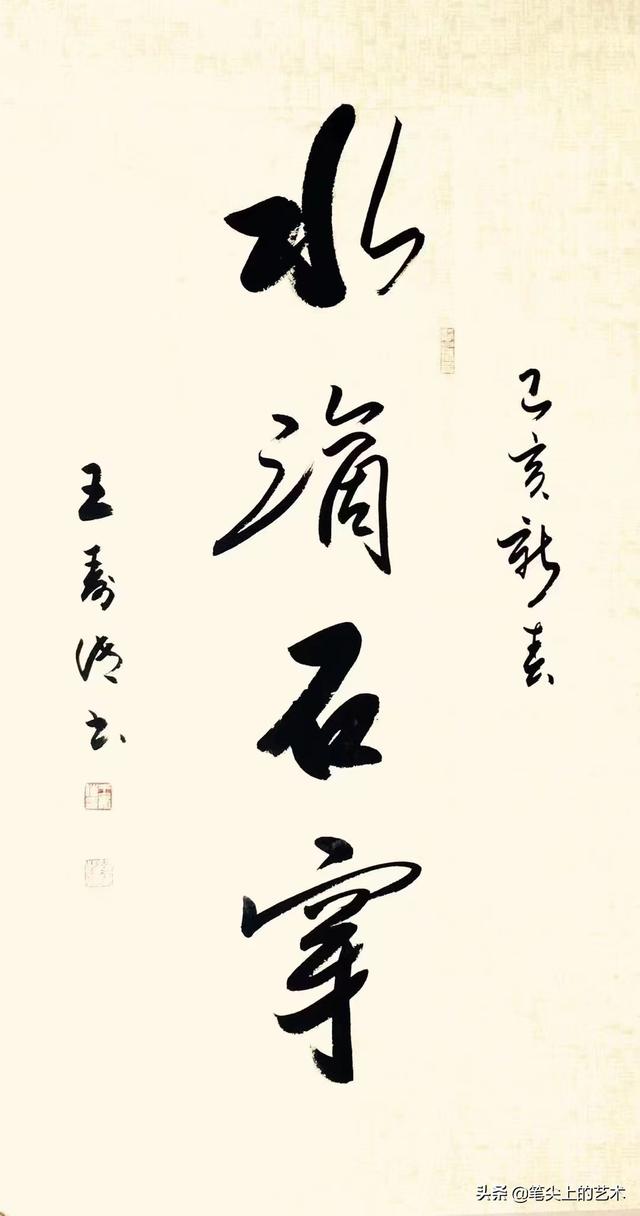 己亥新春
水滴石穿
王寿书
头条 @笔尖上的艺术